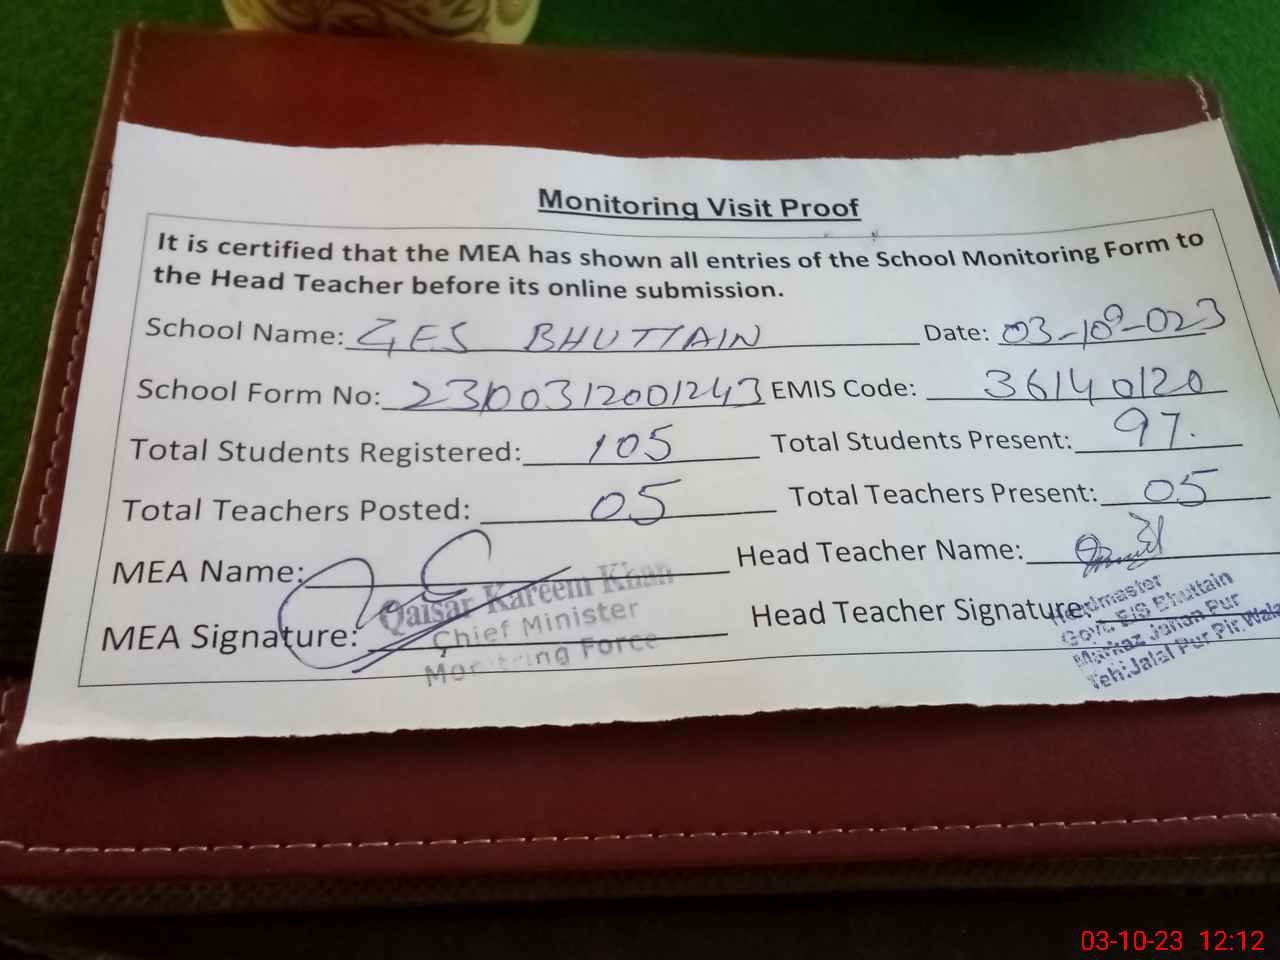 Monitoring Visit Proof
It is certified that the MEA has shown all entries of the School Monitoring Form to
the Head Teacher before its online submission.
School Name: GES BHUTTAIN Date: 03-10-023
School Form No: 23100312001243 EMIS Code: 36140120
Total Students Registered: 105 Total Students Present: 97.
Total Teachers Posted: 05 Total Teachers Present: 05
MEA Name: Head Teacher Name:
Qaisar Kareem Khan
Chief Minister
Monitoring Force
MEA Signature: Head Teacher Signature:
Headmaster
Govt. E/S Bhuttain
Markaz Jahan Pur
Teh: Jalal Pur Pir Wala
03-10-23 12:12